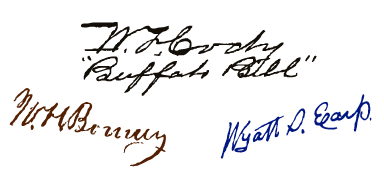 W. F. Cody
"Buffalo Bill"
W. H. Bonney
Wyatt S. Earp.